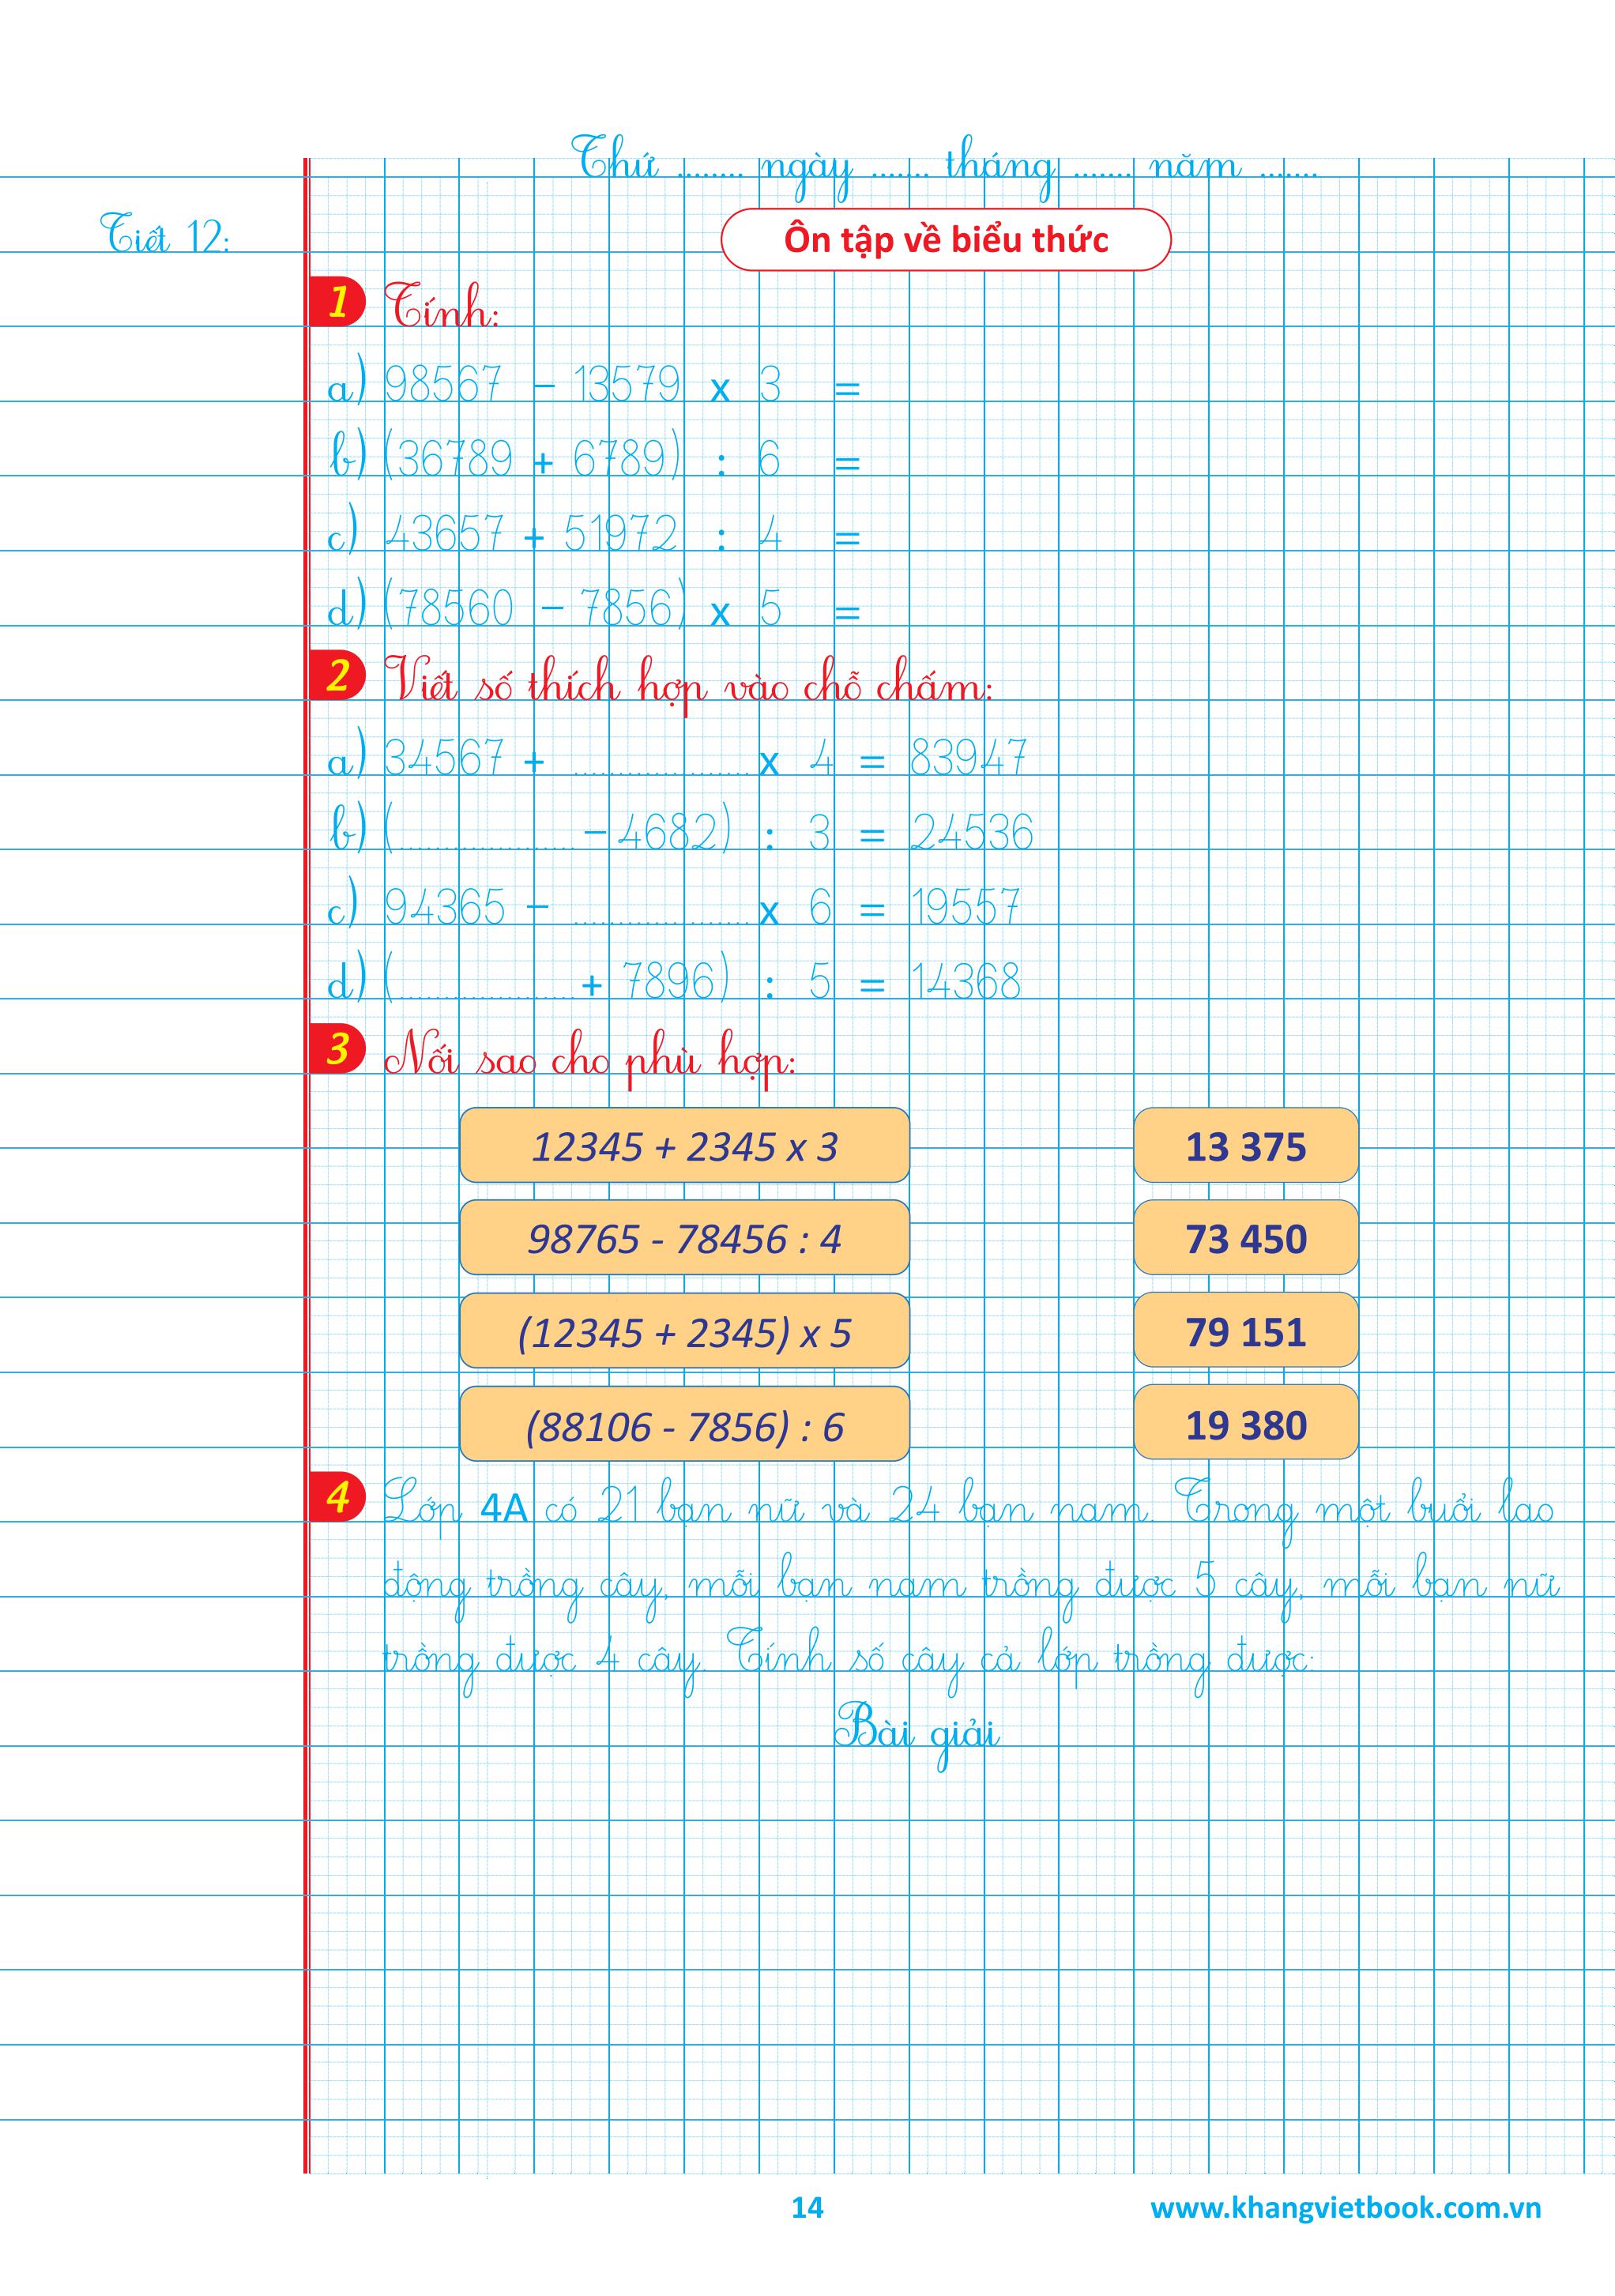 Thứ ........ ngày ....... tháng ....... năm .......
Tiết 12:
Ôn tập về biểu thức
1 Tính:
a) 98567 – 13579 x 3 =
b) (36789 + 6789) : 6 =
c) 43657 + 51972 : 4 =
d) (78560 – 7856) x 5 =
2 Viết số thích hợp vào chỗ chấm:
a) 34567 + .................... x 4 = 83947
b) (.................... – 4682) : 3 = 24536
c) 94365 – .................... x 6 = 19557
d) (.................... + 7896) : 5 = 14368
3 Nối sao cho phù hợp:
12345 + 2345 x 3 13 375
98765 - 78456 : 4 73 450
(12345 + 2345) x 5 79 151
(88106 - 7856) : 6 19 380
4 Lớp 4A có 21 bạn nữ và 24 bạn nam. Trong một buổi lao
động trồng cây, mỗi bạn nam trồng được 5 cây, mỗi bạn nữ
trồng được 4 cây. Tính số cây cả lớp trồng được:
Bài giải
14 www.khangvietbook.com.vn